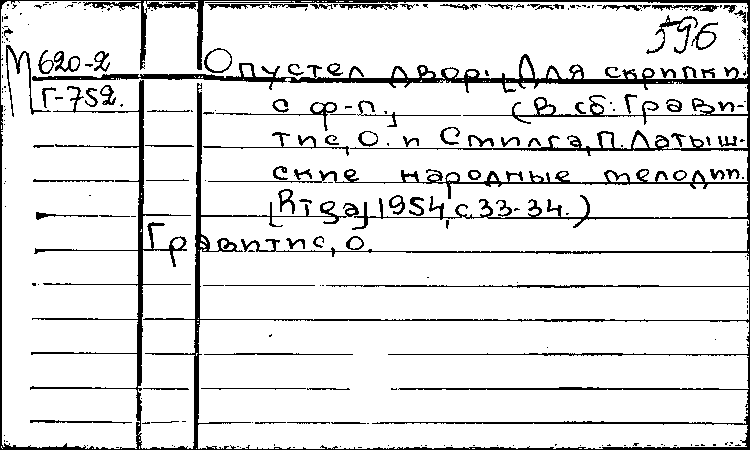 596
М 620-2
Г-752.
Опустел двор. [Для скрипки
с ф-п.] (В сб: Грави-
тис, О. и Смилга, П. Латыш-
ские народные мелодии.
[Rīga] 1954, с. 33-34.)
Гравитис, О.